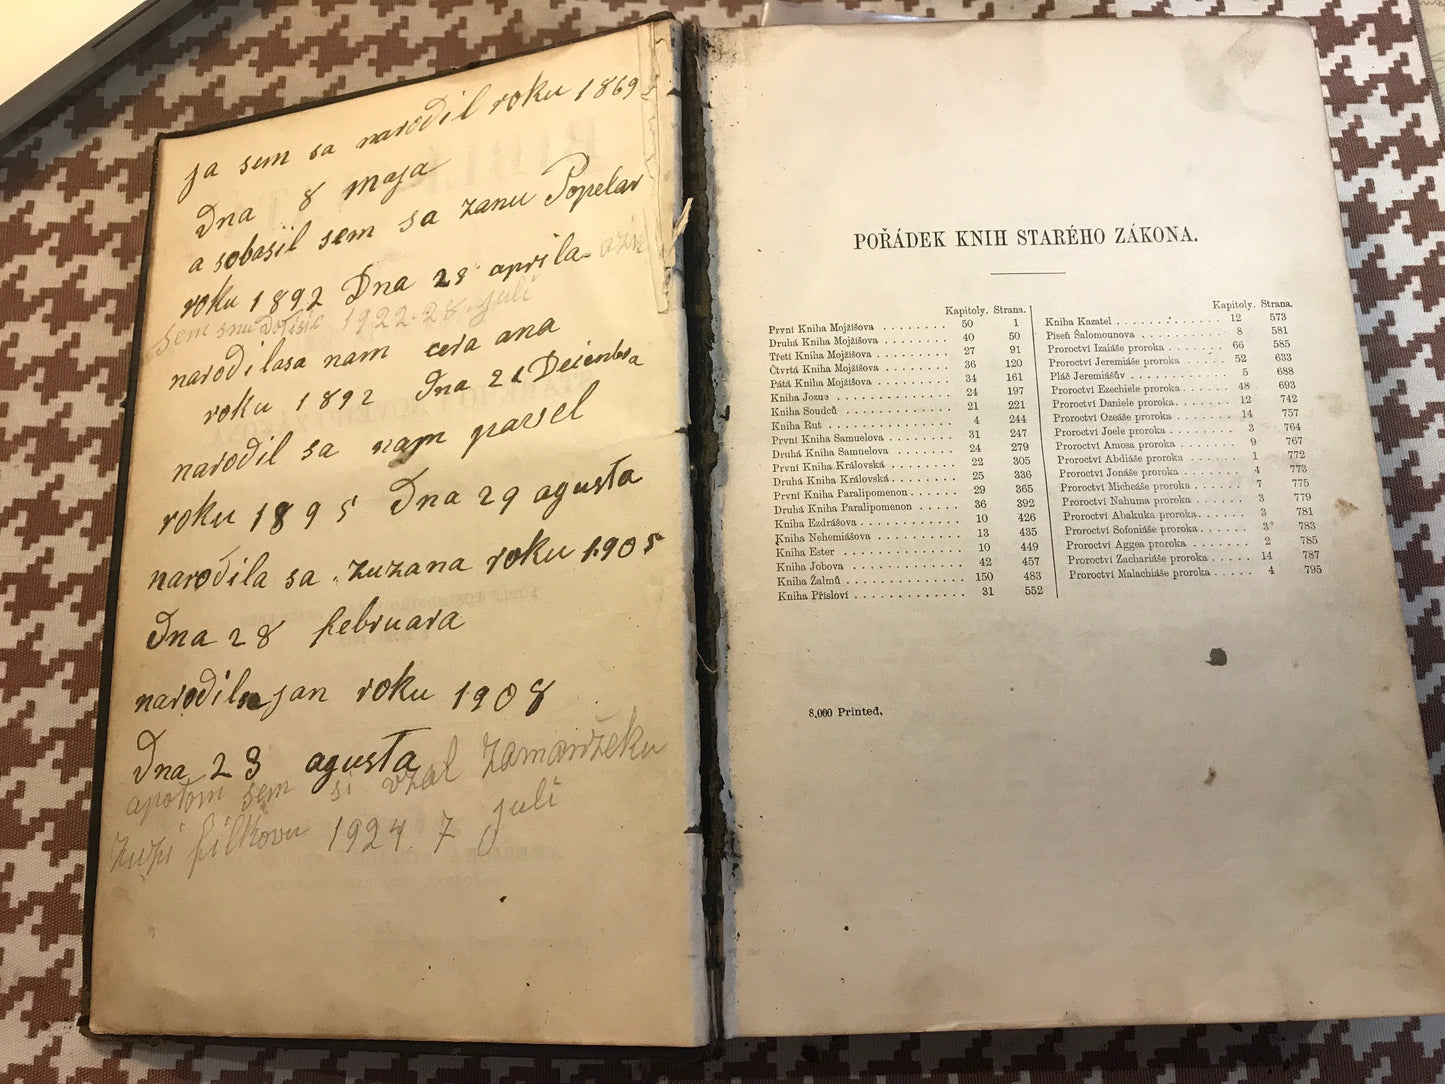 ja sem sa narodil roku 1869
Dna 8 maja
a sobasil sem sa zanu Popelar
roku 1892 Dna 28 aprila
sem snu 1922 28 juli
narodilasa nam cera ana
roku 1892 Dna 21 Deicenbra
narodil sa nam pavel
roku 1895 Dna 29 agusta
narodila sa zuzana roku 1905
Dna 28 februara
narodil jan roku 1908
Dna 23 agusta
apotom sem si vzal zamanželku
filkovu 1924 7 juli
POŘÁDEK KNIH STARÉHO ZÁKONA.
Kapitoly. Strana.
První Kniha Mojžíšova 50 1
Druhá Kniha Mojžíšova 40 50
Třetí Kniha Mojžíšova 27 91
Čtvrtá Kniha Mojžíšova 36 120
Pátá Kniha Mojžíšova 34 161
Kniha Jozue 24 197
Kniha Soudců 21 221
Kniha Rut 4 244
První Kniha Samuelova 31 247
Druhá Kniha Samuelova 24 279
První Kniha Královská 22 305
Druhá Kniha Královská 25 336
První Kniha Paralipomenon 29 365
Druhá Kniha Paralipomenon 36 392
Kniha Ezdrášova 10 426
Kniha Nehemiášova 13 435
Kniha Ester 10 449
Kniha Jobova 42 457
Kniha Žalmů 150 483
Kniha Přísloví 31 552
Kapitoly. Strana.
Kniha Kazatel 12 573
Píseň Šalomounova 8 581
Proroctví Izaiáše proroka 66 585
Proroctví Jeremiáše proroka 52 633
Pláč Jeremiášův 5 688
Proroctví Ezechiele proroka 48 693
Proroctví Daniele proroka 12 742
Proroctví Ozeáše proroka 14 757
Proroctví Joele proroka 3 764
Proroctví Amosa proroka 9 767
Proroctví Abdiáše proroka 1 772
Proroctví Jonáše proroka 4 773
Proroctví Micheáše proroka 7 775
Proroctví Nahuma proroka 3 779
Proroctví Abakuka proroka 3 781
Proroctví Sofoniáše proroka 3 783
Proroctví Aggea proroka 2 785
Proroctví Zachariáše proroka 14 787
Proroctví Malachiáše proroka 4 795
8,000 Printed.